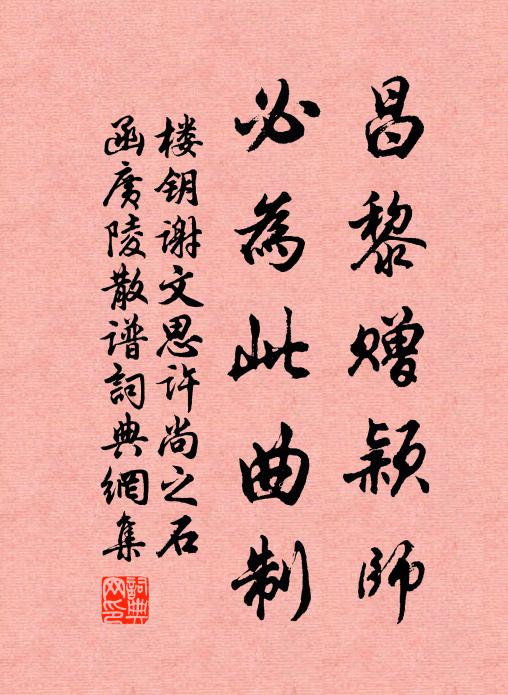 昌黎赠颖师
必為此曲制
楼钥谢文思许尚之石
函廣陵散谱詞典網集
詞典網印